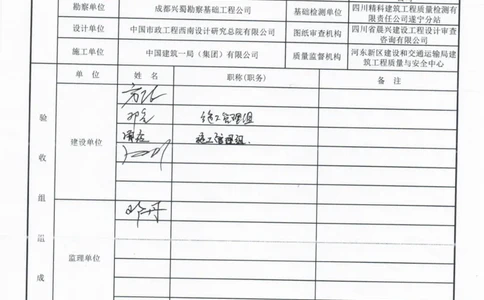 勘察单位 成都兴蜀勘察基础工程公司 基础检测单位 四川精科建筑工程质量检测有限责任公司遂宁分站
设计单位 中国市政工程西南设计研究总院有限公司 图纸审查机构 四川省晨兴建设工程设计审查咨询有限公司
施工单位 中国建筑一局（集团）有限公司 质量监督机构 河东新区建设和交通运输局建筑工程质量与安全中心
单 位 姓 名 职称(职务) 备 注
验收组组成
建设单位
施工管理组
施工管理组.
监理单位